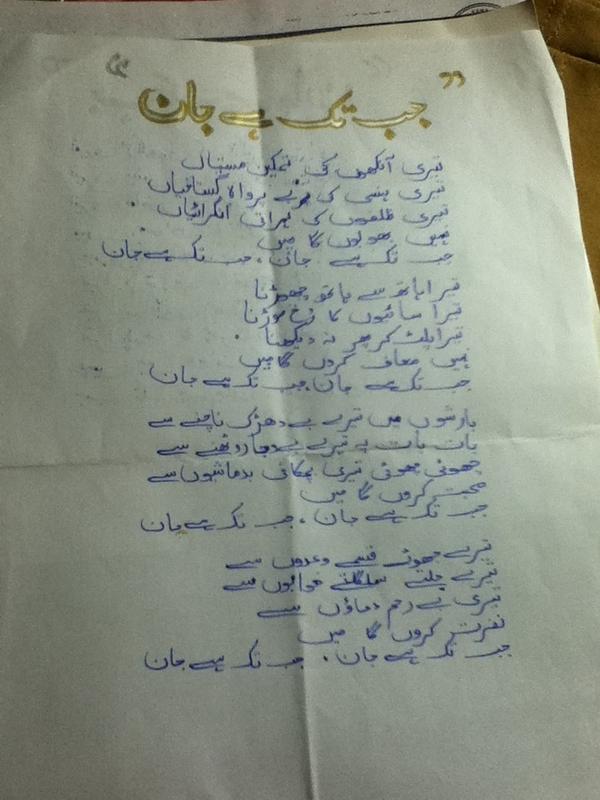 "جب تک ہے جان"
تیری آنکھوں کی نمکین مستیاں
تیری ہنسی کی بے پرواہ گستاخیاں
تیری زلفوں کی لہراتی انگڑائیاں
نہیں بھولوں گا میں
جب تک ہے جان، جب تک ہے جان
تیرا ہاتھ سے ہاتھ چھوڑنا
تیرا سائیوں کا رخ موڑنا
تیرا پلٹ کر پھر نہ دیکھنا
نہیں معاف کروں گا میں
جب تک ہے جان، جب تک ہے جان
بارشوں میں تیرے بے دھڑک ناچنے سے
بات بات پہ تیرے بے وجہ روٹھنے سے
چھوٹی چھوٹی تیری بدماشیوں سے
محبت کروں گا میں
جب تک ہے جان، جب تک ہے جان
تیرے جھوٹے قسمے وعدوں سے
تیرے جلتے سلگتے خوابوں سے
تیری بے رحم دعاؤں سے
نفرت کروں گا میں
جب تک ہے جان، جب تک ہے جان